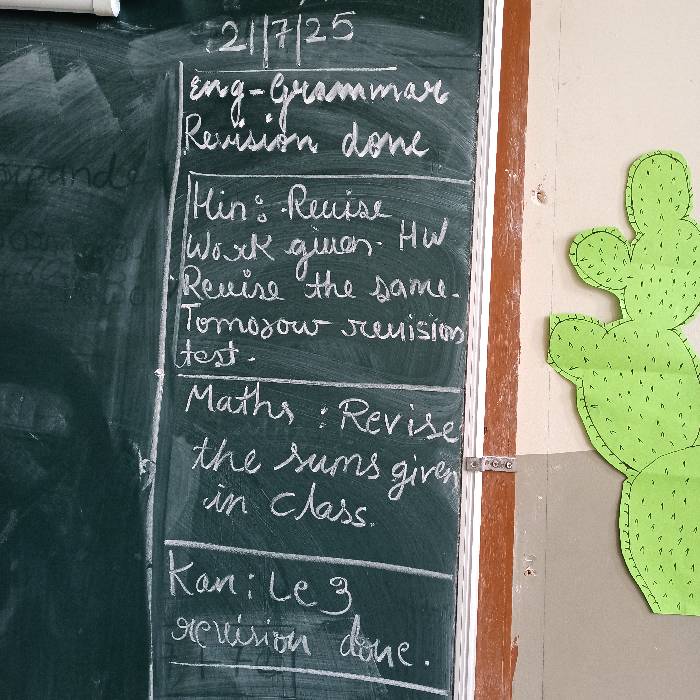 21/7/25
Eng-Grammar
Revision done
Hin: Revise
Work given. HW
Revise the same.
Tomorow revision
test.
Maths : Revise
the sums given
in class.
Kan: Le 3
revision done.